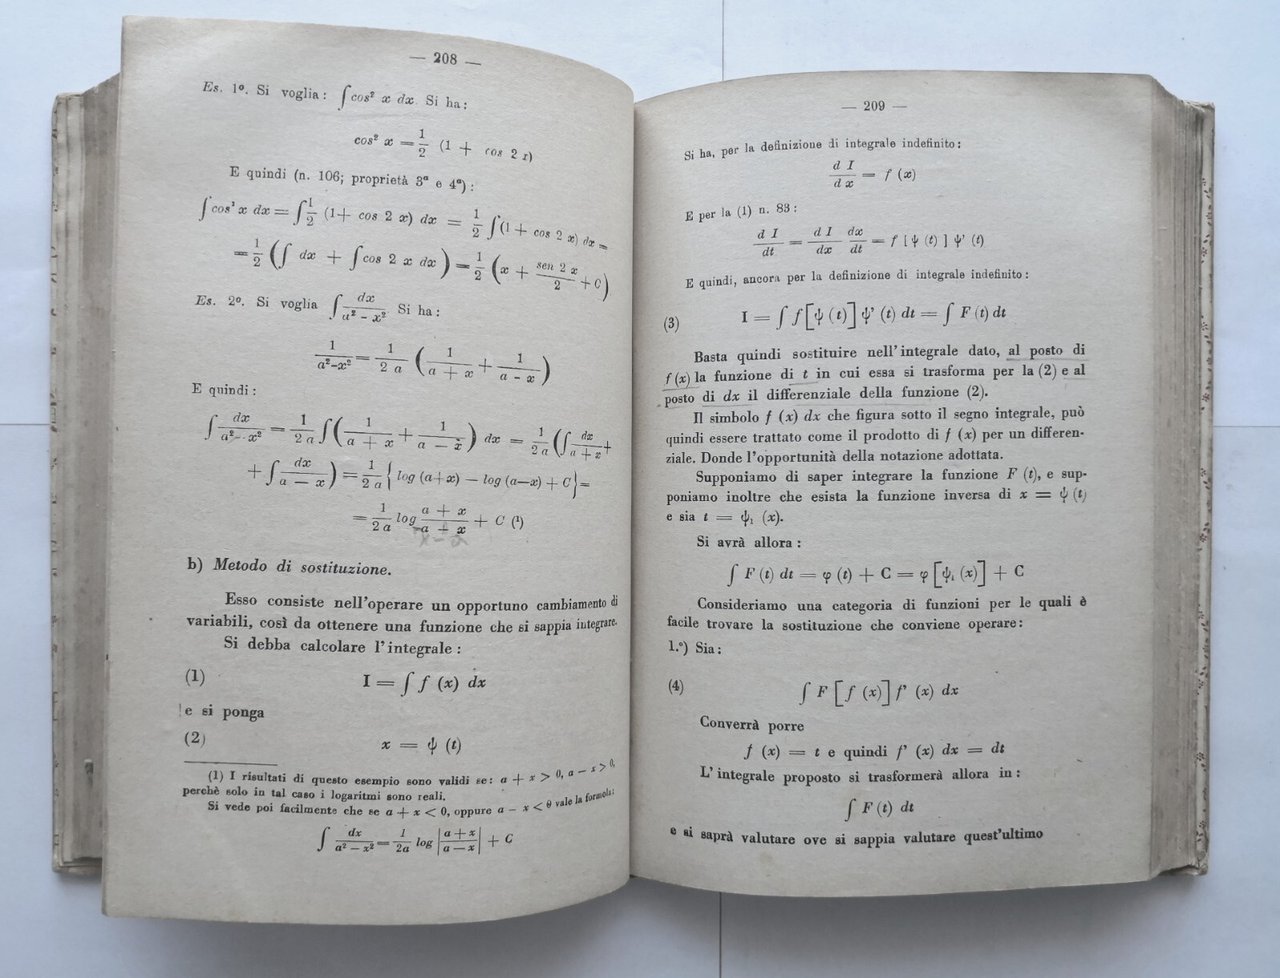 — 208 —
Es. 1º. Si voglia: ∫ cos² x dx. Si ha:
cos² x = 1/2 (1 + cos 2 x)
E quindi (n. 106; proprietà 3ª e 4ª):
∫ cos² x dx = ∫ 1/2 (1 + cos 2 x) dx = 1/2 ∫ (1 + cos 2 x) dx =
= 1/2 (∫ dx + ∫ cos 2 x dx) = 1/2 (x + sen 2 x / 2 + C)
Es. 2º. Si voglia ∫ dx / a² - x² Si ha:
1 / a²-x² = 1 / 2 a (1 / a + x + 1 / a - x)
E quindi:
∫ dx / a² - x² = 1 / 2 a ∫ (1 / a + x + 1 / a — x) dx = 1 / 2 a (∫ dx / a + x +
+ ∫ dx / a — x) = 1 / 2 a { log (a+x) — log (a—x) + C } =
= 1 / 2 a log a + x / a + x + C (¹)
a - x
b) Metodo di sostituzione.
Esso consiste nell'operare un opportuno cambiamento di
variabili, così da ottenere una funzione che si sappia integrare.
Si debba calcolare l'integrale:
(1) I = ∫ f (x) dx
e si ponga
(2) x = ψ (t)
(1) I risultati di questo esempio sono validi se: a + x > 0, a — x > 0,
perchè solo in tal caso i logaritmi sono reali.
Si vede poi facilmente che se a + x < 0, oppure a — x < 0 vale la formula:
∫ dx / a² — x² = 1 / 2a log | a + x / a — x | + C
— 209 —
Si ha, per la definizione di integrale indefinito:
d I / d x = f (x)
E per la (1) n. 83:
d I / dt = d I / dx dx / dt = f [ ψ (t) ] ψ' (t)
E quindi, ancora per la definizione di integrale indefinito:
(3) I = ∫ f [ψ (t)] ψ' (t) dt = ∫ F (t) dt
Basta quindi sostituire nell'integrale dato, al posto di
f (x) la funzione di t in cui essa si trasforma per la (2) e al
posto di dx il differenziale della funzione (2).
Il simbolo f (x) dx che figura sotto il segno integrale, può
quindi essere trattato come il prodotto di f (x) per un differen-
ziale. Donde l'opportunità della notazione adottata.
Supponiamo di saper integrare la funzione F (t), e sup-
poniamo inoltre che esista la funzione inversa di x = ψ (t)
e sia t = ψ₁ (x).
Si avrà allora:
∫ F (t) dt = φ (t) + C = φ [ψ₁ (x)] + C
Consideriamo una categoria di funzioni per le quali è
facile trovare la sostituzione che conviene operare:
1.º) Sia:
(4) ∫ F [f (x)] f' (x) dx
Converrà porre
f (x) = t e quindi f' (x) dx = dt
L'integrale proposto si trasformerà allora in:
∫ F (t) dt
e si saprà valutare ove si sappia valutare quest'ultimo